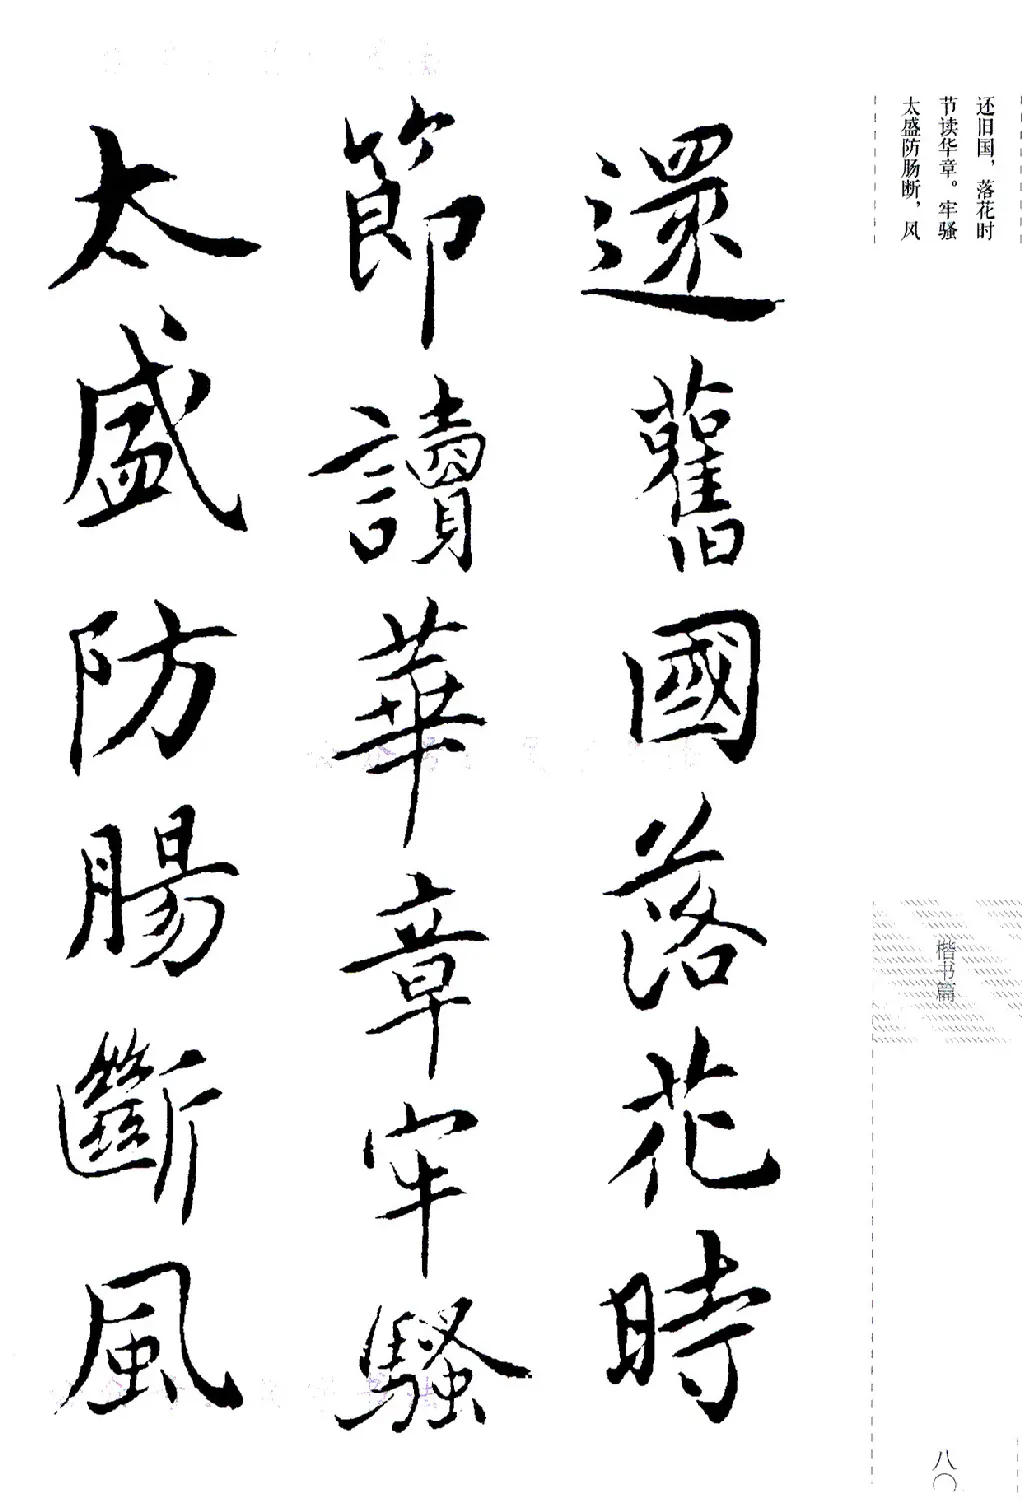 还旧国，落花时
节读华章。牢骚
太盛防肠断，风
還舊國落花時
節讀華章牢騷
太盛防腸斷風
楷书篇
八〇